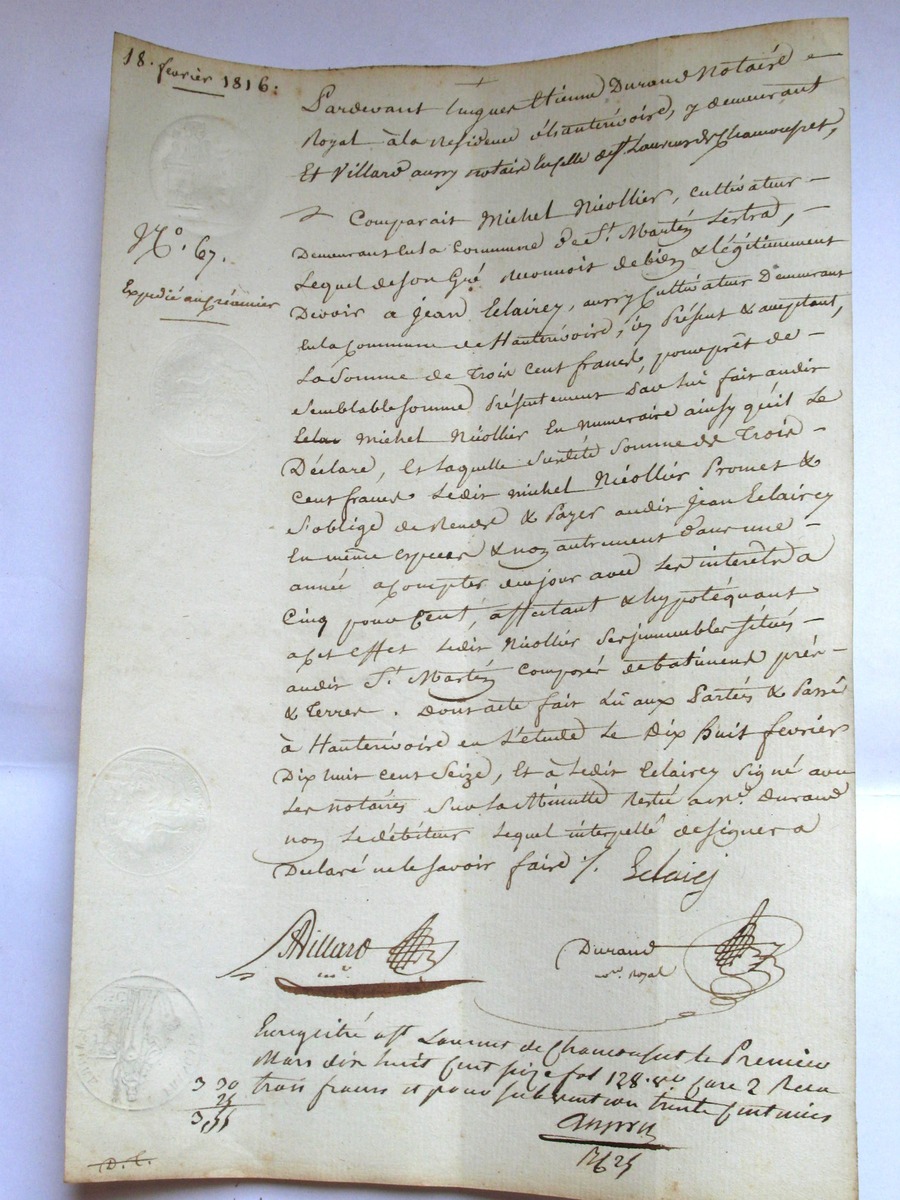 18. fevrier 1816:
Pardevant Jacques Etienne Durand Notaire
Royal à la residence d'hauterivoire, y demeurant
Et Villard aussy notaire de St. Laurent de Chamousset,
Comparait Michel Nicollier, cultivateur
Demeurant en la Commune de St. Martin Lestra,
Lequel de son Gré reconnoit debien & légitimement
No. 67.
Expedié au créancier
Devoir a Jean Eclairey, aussy Cultivateur Demeurant
en la Commune de Hauterivoire, ici Présent & acceptant,
La Somme de Trois cent francs, pour prêt de
Semblable Somme Présentement par lui fait audit
Michel Nicollier En numeraire ainsy qu'il Le
Déclare, Et laquelle Susdite Somme de Trois
Cent francs Ledit michel Nicollier Promet &
S'oblige de Rendre & Payer audit Jean Eclairey
En même especes & non autrement dans une
année a Compter du jour avec Les interets a
Cinq pour Cent, affectant & hypotéquant
a cet effet Ledit Nicollier Ses immeubles situés
audit St. Martin Composés de batiments prés
& Terres. Dont acte fait Lû aux Parties & Passé
à Hauterivoire en L'etude Le Dix huit fevrier
Dix huit cent Seize, Et à Ledit Eclairey Signé avec
Les notaires Sur La Minutte Restée a Me. Durand
non Le débiteur Lequel interpellé de signer a
Declaré ne le savoir faire /. Eclairej
Villard Durand
nore. Royal
Enregistré a St. Laurent de Chamousset le Premier
Mars dix huit cent seize fol 128. vo. case 2 Recu
trois francs et pour subvention trente centimes
3 30
25
3,55
D. C.